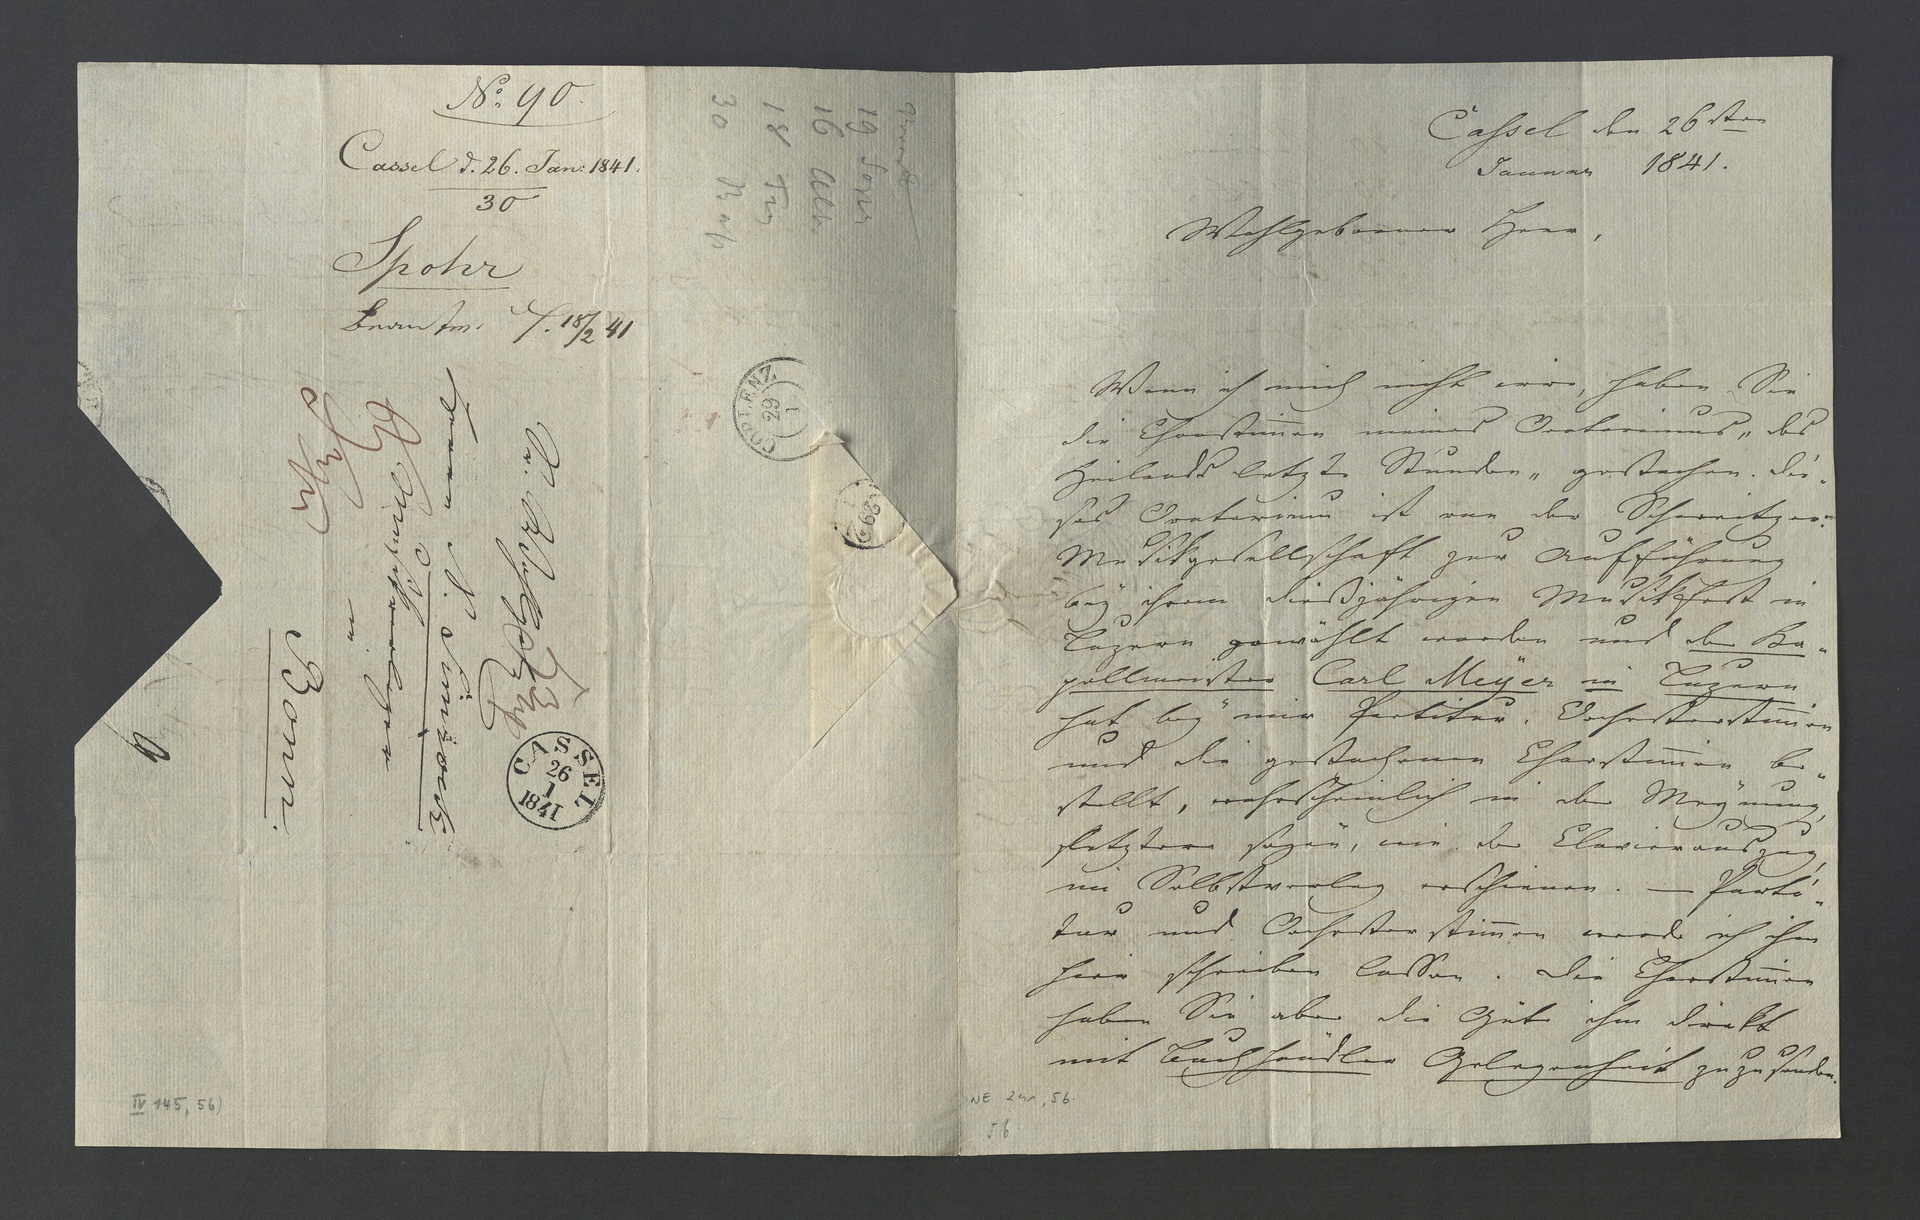 No. 90.
Cassel d. 26. Jan: 1841.
30
Spohr
Beantw. 18/2 41
Sr. Wohlgeb
Herrn N. Simrock
Musikverleger
in
Bonn.
CASSEL
26
1
1841
COBLENZ
29
1
29
19
16
18
30
IV 145, 56)
Cassel den 26sten
Januar 1841.
Wohlgeborner Herr,
Wenn ich mich nicht irre, haben Sie
die Chorstimmen meines Oratoriums „des
Heilands letzte Stunden„ gestochen. Die-
ses Oratorium ist von der Schweitzer-
Musikgesellschaft zur Aufführung
bey ihrem dießjährigen Musikfest in
Luzern gewählt worden und der Ka-
pellmeister Carl Meyer in Luzern
hat bey mir Partitur, Orchesterstimmen
und die gestochenen Chorstimmen be-
stellt, wahrscheinlich in der Meynung,
letztere seyen, wie der Clavierauszug,
im Selbstverlag erschienen. — Parti-
tur und Orchesterstimmen werde ich ihm
hier schreiben lassen. Die Chorstimmen
haben Sie aber die Güte ihm direkt
mit Buchhändler Gelegenheit zuzusenden.
NE 241, 56.
56